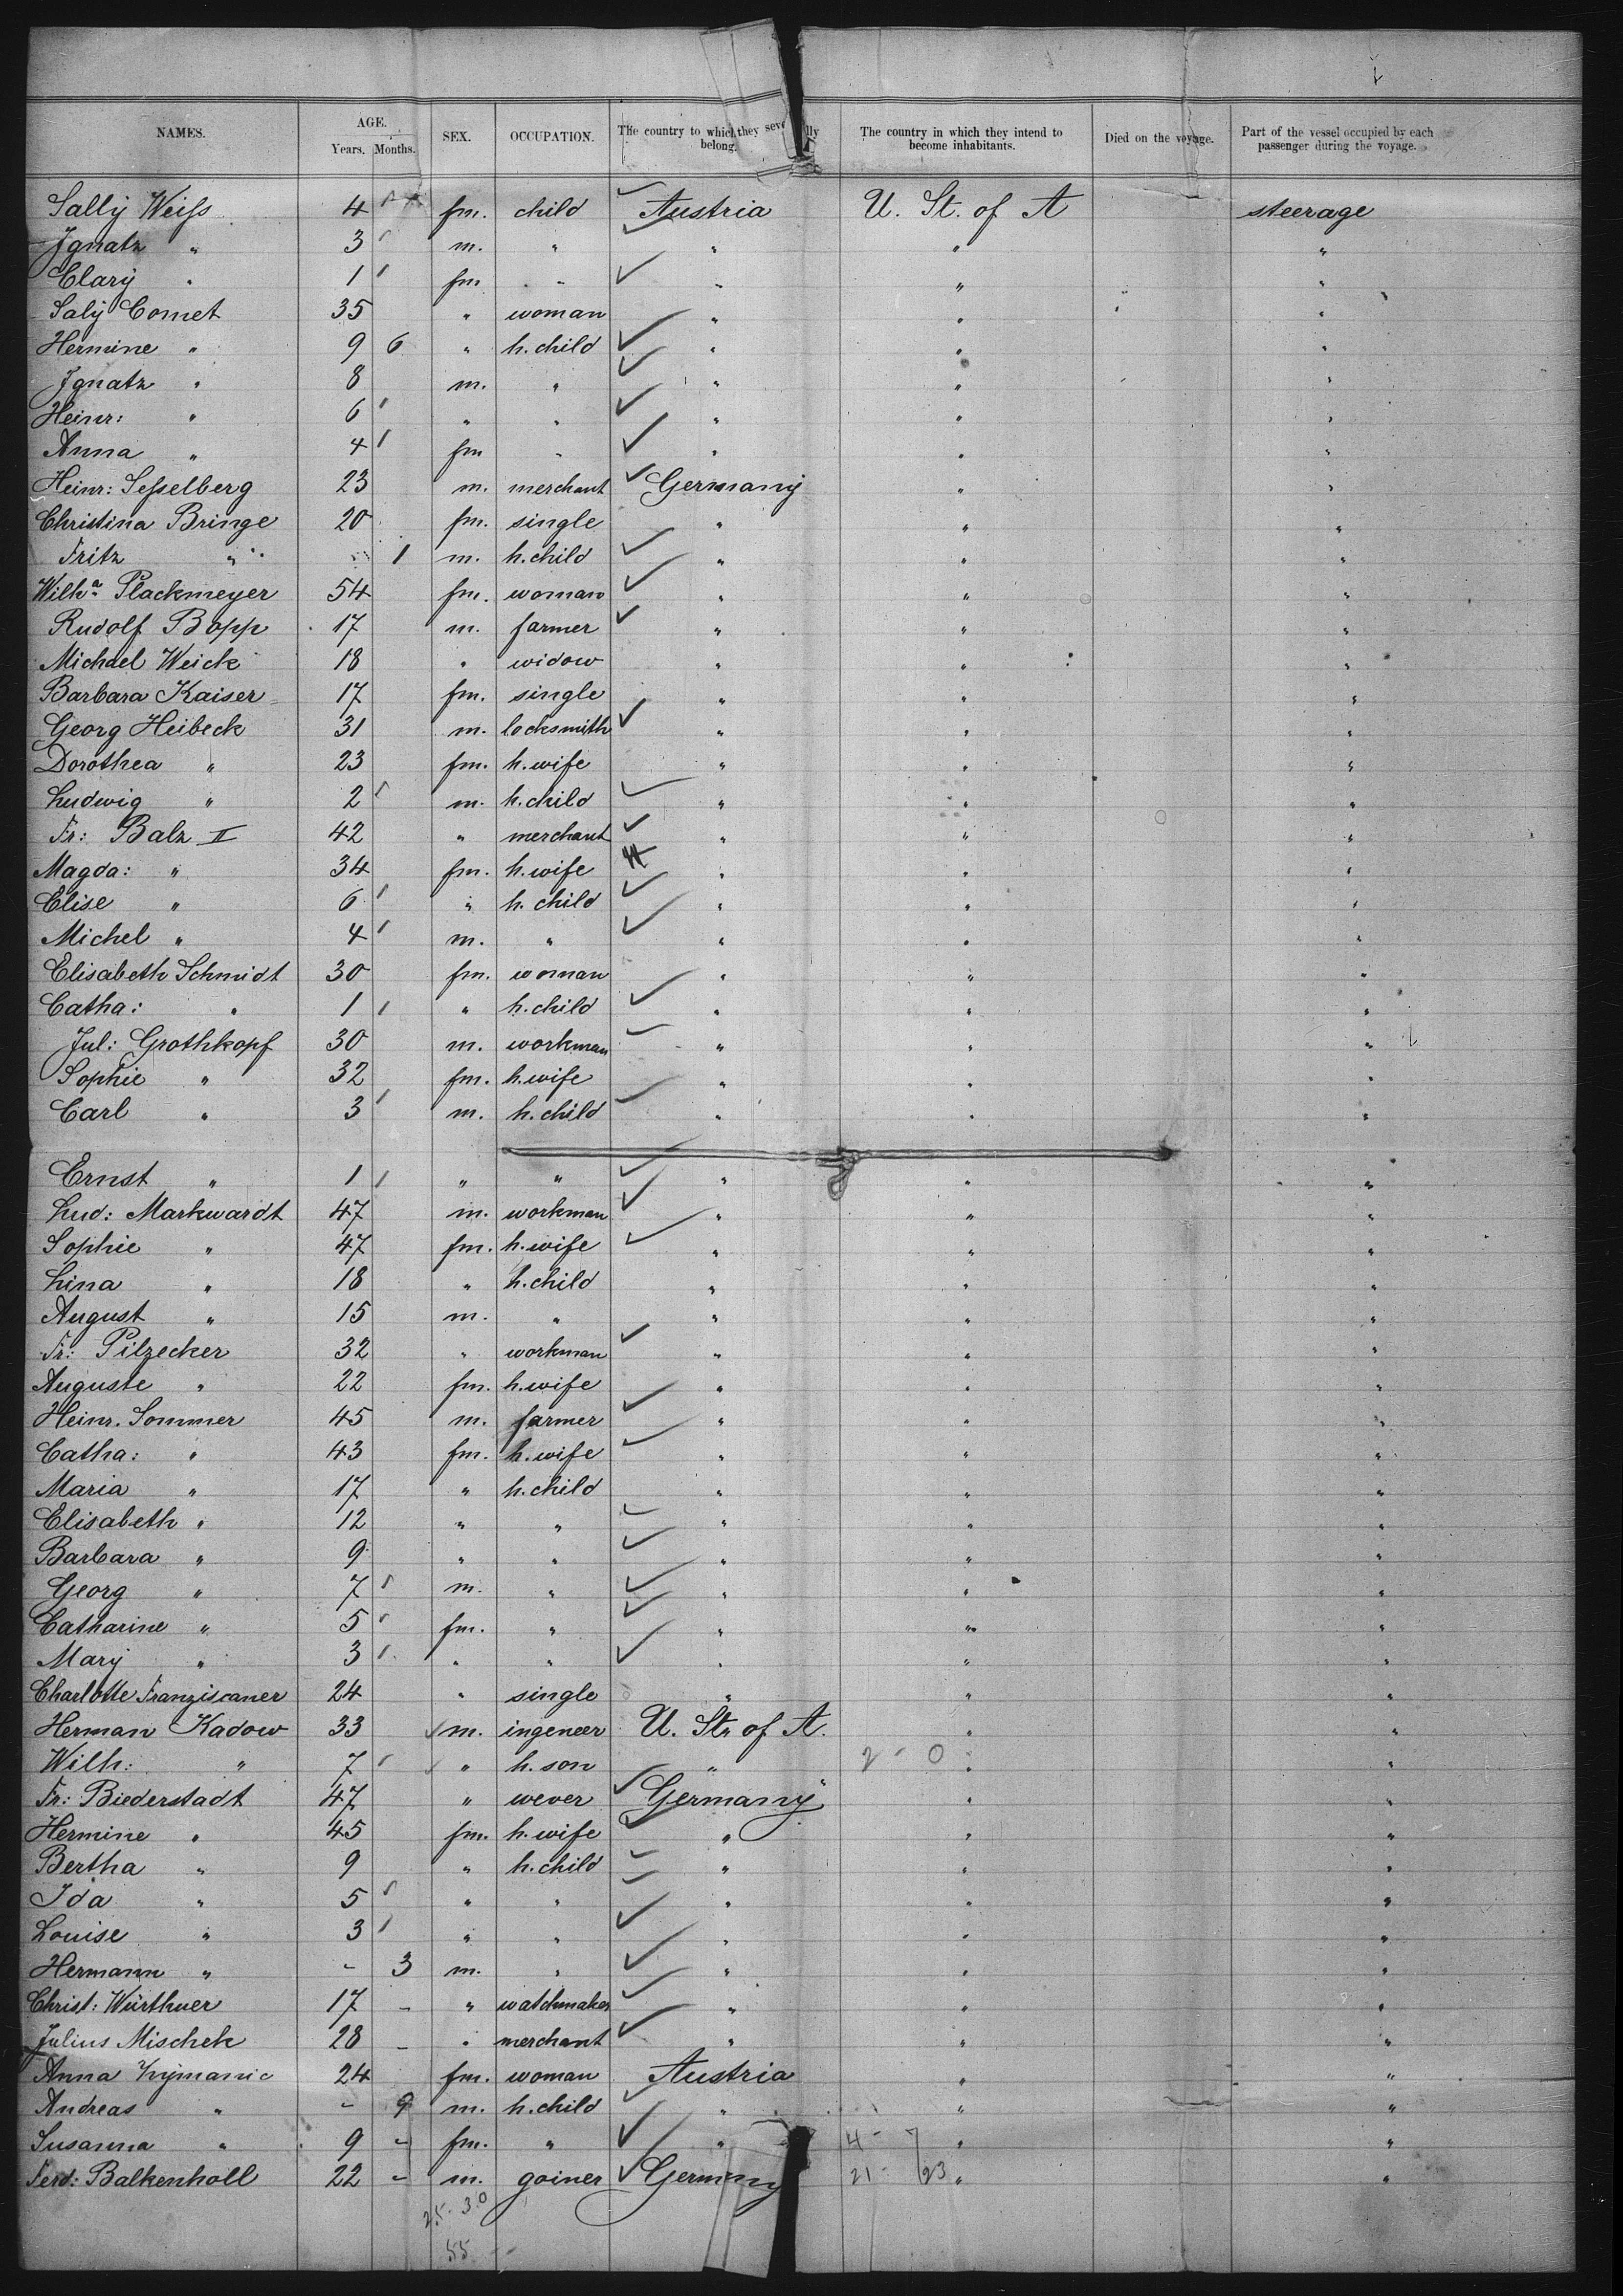 NAMES. AGE. Years. Months. SEX. OCCUPATION. The country to which they seve lly belong. The country in which they intend to become inhabitants. Died on the voyage. Part of the vessel occupied by each passenger during the voyage.
Sally Weiſs 4 fm. child Austria U. St. of A steerage
Ignatz " 3 m. " " " "
Clary " 1 fm " " " "
Saly Comet 35 " woman " " "
Hermine " 9 6 " h. child " " "
Ignatz " 8 m. " " " "
Heinr: " 6 " " " " "
Anna " 4 fm " " " "
Heinr: Seſselberg 23 m. merchant Germany " "
Christina Bringe 20 fm. single " " "
Fritz " 1 m. h. child " " "
Wilh.a Plackmeyer 54 fm. woman " " "
Rudolf Bopp 17 m. farmer " " "
Michael Weick 18 " widow " " "
Barbara Kaiser 17 fm. single " " "
Georg Heibeck 31 m. locksmith " " "
Dorothea " 23 fm. h. wife " " "
Ludwig " 2 m. h. child " " "
Fr: Balz II 42 " merchant " " "
Magda: " 34 fm. h. wife " " "
Elise " 6 " h. child " " "
Michel " 4 m. " " " "
Elisabeth Schmidt 30 fm. woman " " "
Catha: " 1 " h. child " " "
Jul: Grothkopf 30 m. workman " " "
Sophie " 32 fm. h. wife " " "
Carl " 3 m. h. child " " "
Ernst " 1 " " " " "
Lud: Markwardt 47 m. workman " " "
Sophie " 47 fm. h. wife " " "
Lina " 18 " h. child " " "
August " 15 m. " " " "
Fr: Pilzecker 32 " workman " " "
Auguste " 22 fm. h. wife " " "
Heinr. Sommer 45 m. farmer " " "
Catha: " 43 fm. h. wife " " "
Maria " 17 " h. child " " "
Elisabeth " 12 " " " " "
Barbara " 9 " " " " "
Georg " 7 m. " " " "
Catharine " 5 fm. " " " "
Mary " 3 " " " " "
Charlotte Franziscaner 24 " single " " "
Herman Kadow 33 m. ingeneer U. St. of A. " "
Wilh: " 7 " h. son " 2 - 0 " "
Fr: Biederstadt 47 " wever Germany " "
Hermine " 45 fm. h. wife " " "
Bertha " 9 " h. child " " "
Ida " 5 " " " " "
Louise " 3 " " " " "
Hermann " - 3 m. " " " "
Christ: Würthner 17 - " watchmaker " " "
Julius Mischek 28 - " merchant " " "
Anna 24 fm. woman Austria " "
Andreas " - 9 m. h. child " " "
Susanna " 9 - fm. " " 4 - 7 " "
Ferd: Balkenholl 22 - m. goiner Germany 21 - 23 " "
25 - 30
55